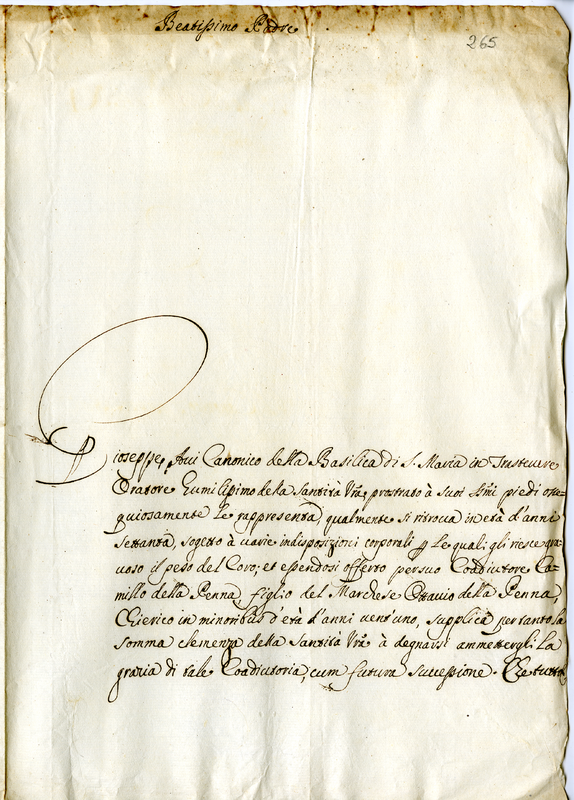 Beatissimo Padre
265
Gioseppe Avi Canonico della Basilica di S. Maria in Trastevere
Oratore Humilissimo della Santità Vrã prostrato à suoi Smi piedi osse=
quiosamente Le rappresenta, qualmente si ritrova in età d'anni
settanta, sogetto à varie indisposizioni corporali p le quali gli riesce gra=
voso il peso del Coro; et essendosi offerto per suo Coadiutore Ca=
millo della Penna figlio del Marchese Ottavio della Penna,
Chierico in minoribus d'età d'anni vent'uno, supplica pertanto la
somma clemenza della Santità Vrã à degnarsi ammettergli La
grazia di tale Coadiutoria cum futura successione. Che tutto